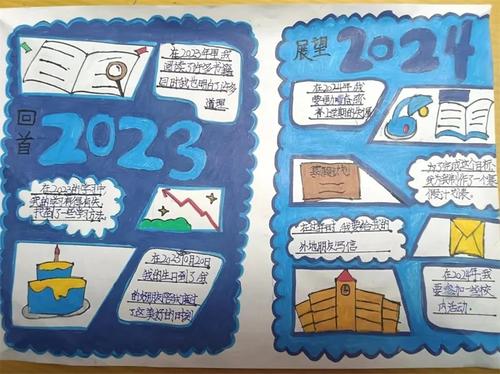 回首
2023
在2023年里我
阅读了许多书籍
同时我也明白了许多
道理
在2023的学习中
我的学习有得有失
我找到了一些学习方法
在2023年10月20日
我的生日到了
我的好朋友陪我度过
了这美好的日子
展望
2024
在2024年我
要
上学期的失误
寒假计划
为了完成这个目标
我为我制作了一个寒
假计划表。
在
我要给我的
外地朋友写信
在2024年我
要参加一些校
内活动.